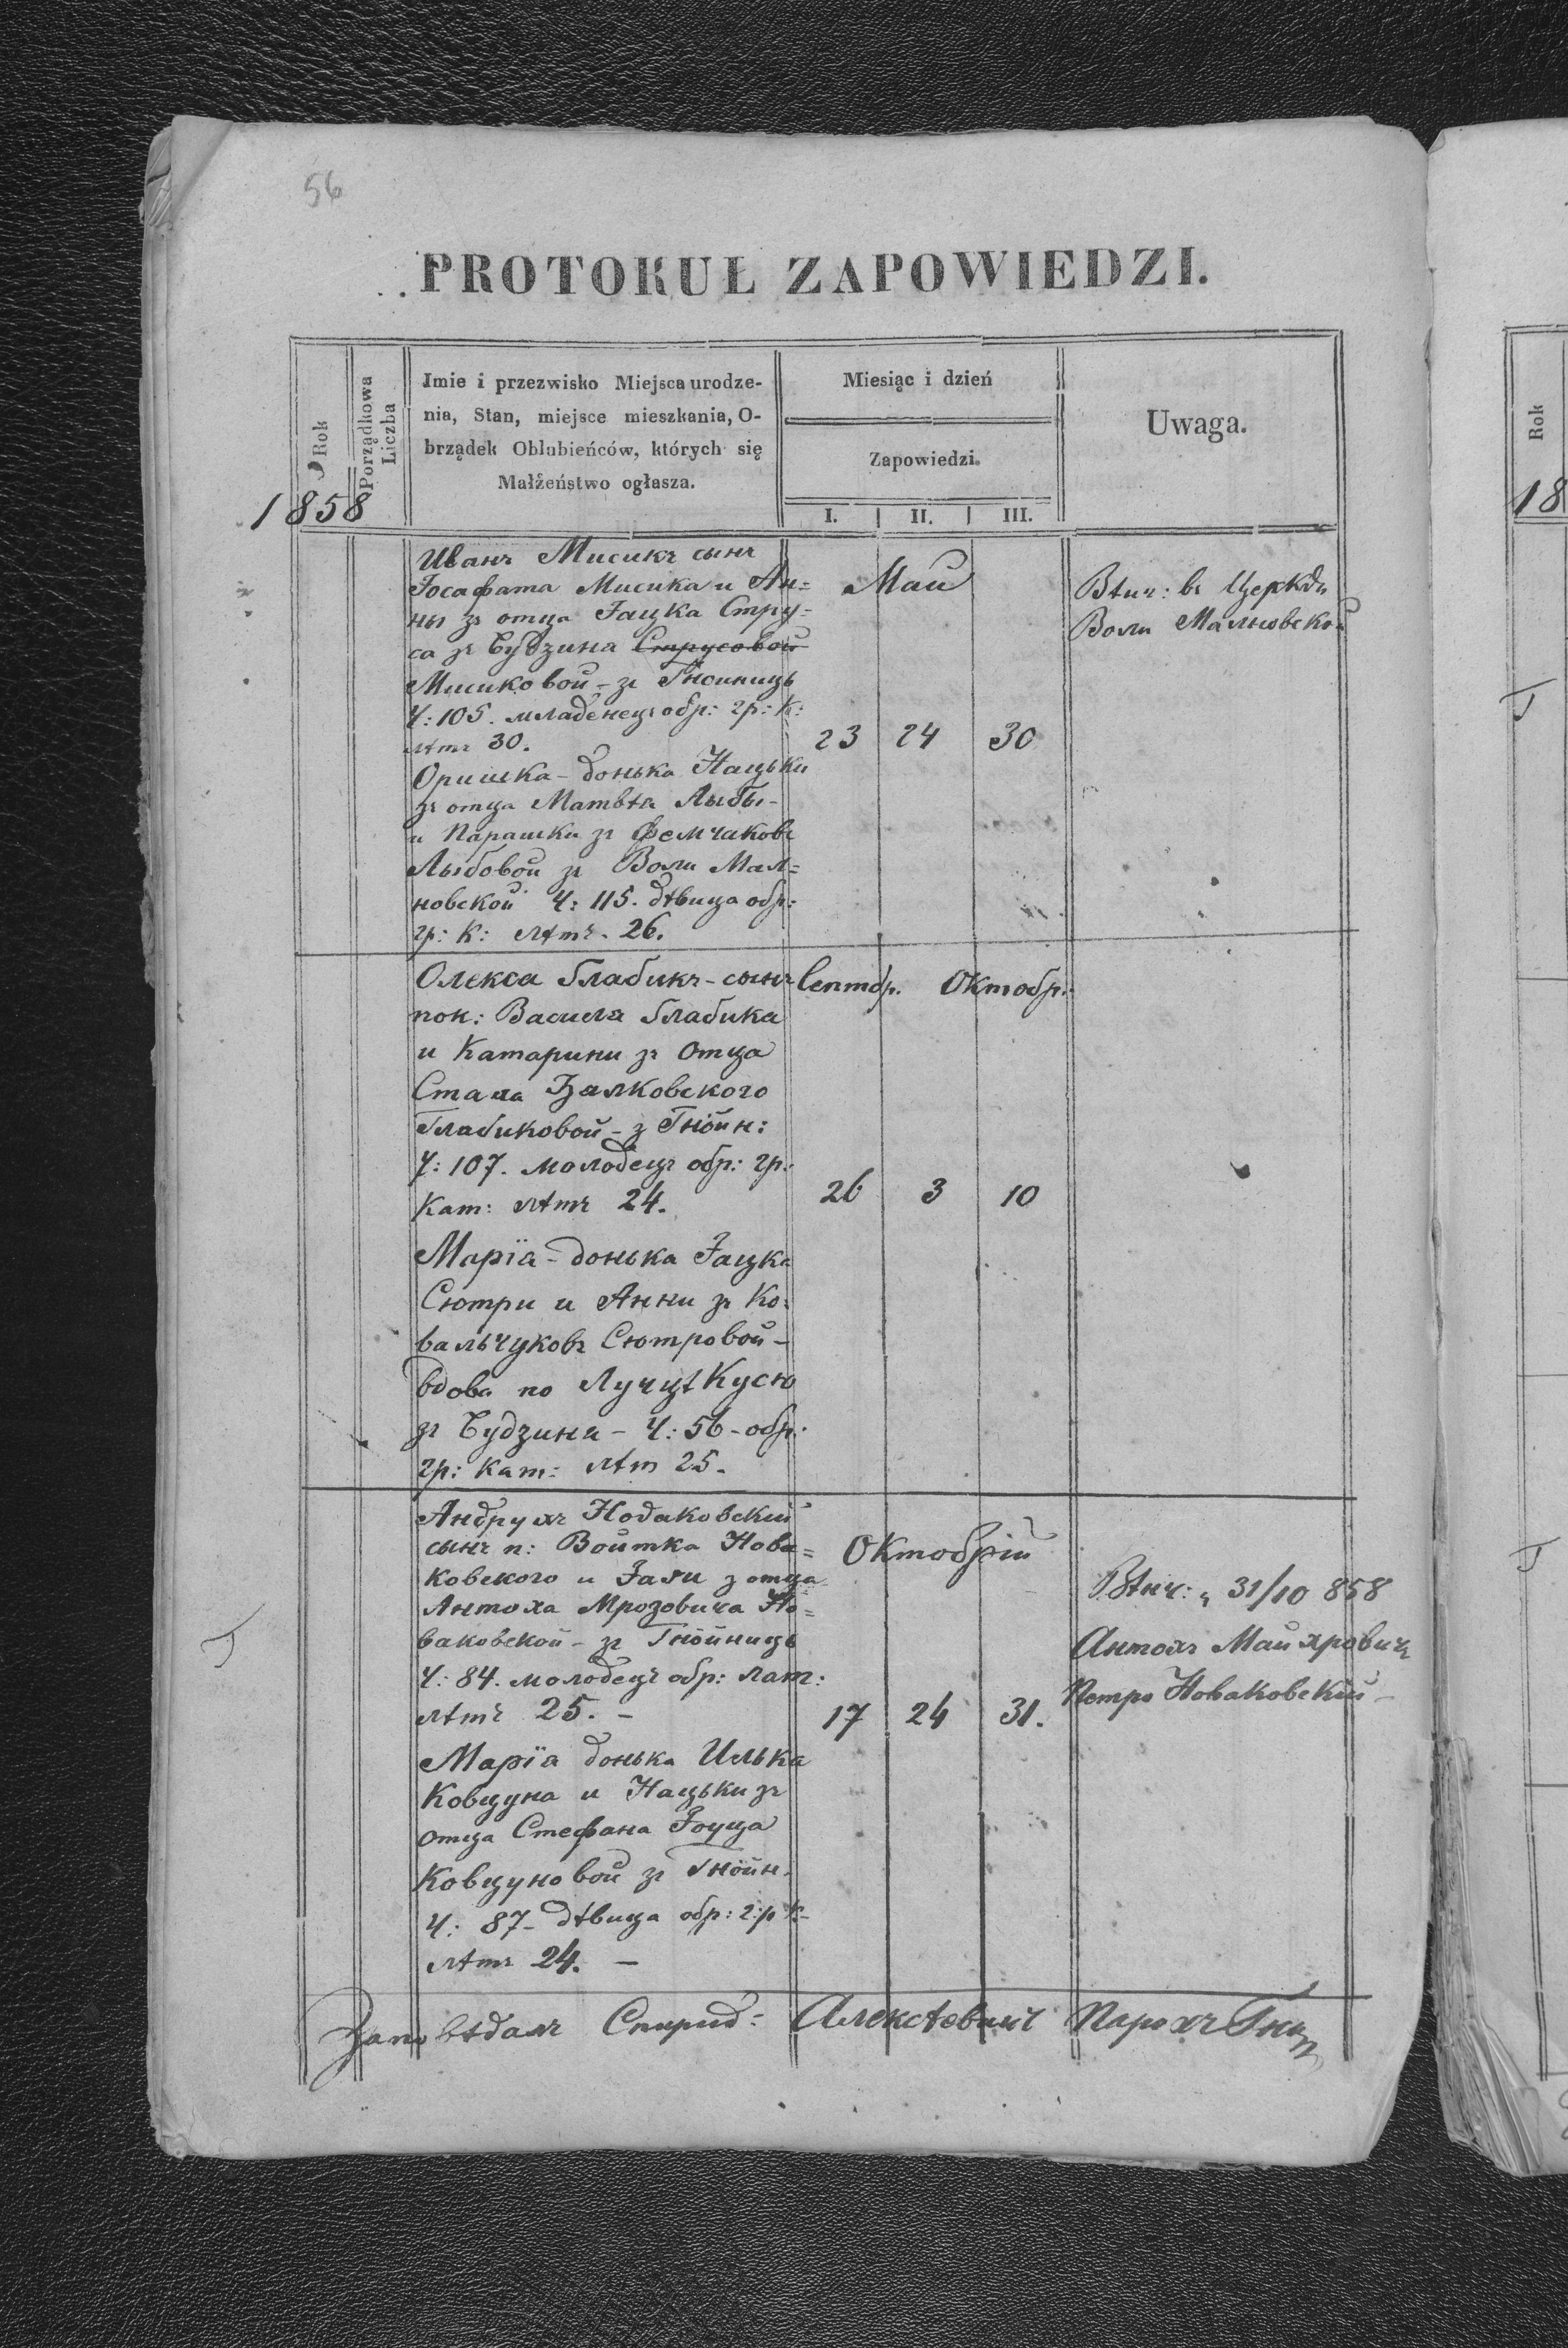 56
PROTOKUŁ ZAPOWIEDZI.
Rok
Porządkowa Liczba
Imie i przezwisko Miejsca urodze-
nia, Stan, miejsce mieszkania, O-
brządek Oblubieńców, których się
Małżeństwo ogłasza.
Miesiąc i dzień
Zapowiedzi.
I. II. III.
Uwaga.
1858
Иванъ Мисикъ сынъ
Іосафата Мисика и Ан=
ны зъ отца Яцка Стру-
са зъ Будзина Струсовой
Мисиковой - зъ Гноиницъ
Ч: 105. младенецъ обр: гр: к:
лѣтъ 30.
Оришка - донька Нацьки
зъ отца Матвѣя Лыбы -
и Парашки зъ Фемчаковъ
Лыбовой зъ Воли Мал=
новской Ч: 115. дѣвица обр:
гр: к: лѣтъ. 26.
Май
23 24 30
Вѣнч: въ Церкви
Воли Мальновской
Олекса Глабикъ - сынъ
пок: Василя Глабика
и Катарини зъ отца
Стаха Зялковского
Глабиковой - з Гнойн:
Ч: 107. молодецъ обр: гр:
Кат: лѣтъ 24.
Марїа - донька Яцка
Сютри и Анни зъ Ко=
вальчуковъ Сютровой -
вдова по Луцѣ Кусю
зъ Будзина - Ч: 56 - обр:
гр: кат: лѣт 25.
Септбр. Октобр:
26 3 10
Андрухъ Новаковский
сынъ п: Войтка Нова=
ковского и З отца
Антоха Мрозовича Но=
ваковской - зъ Гнойницъ
Ч: 84. молодецъ обр: лат:
лѣтъ 25. -
Марїа донька Илька
Ковцуна и Нацьки зъ
отца Стефана
Ковцуновой зъ Гнойн.
Ч: 87 - дѣвица обр: гр к -
лѣтъ 24. -
Октобрій
17 24 31.
Вѣнч: 31/10 858
Антохъ
Петро Новаковский -
Заповѣдалъ Спирид: Алексѣевичъ Парохъ
Rok
18